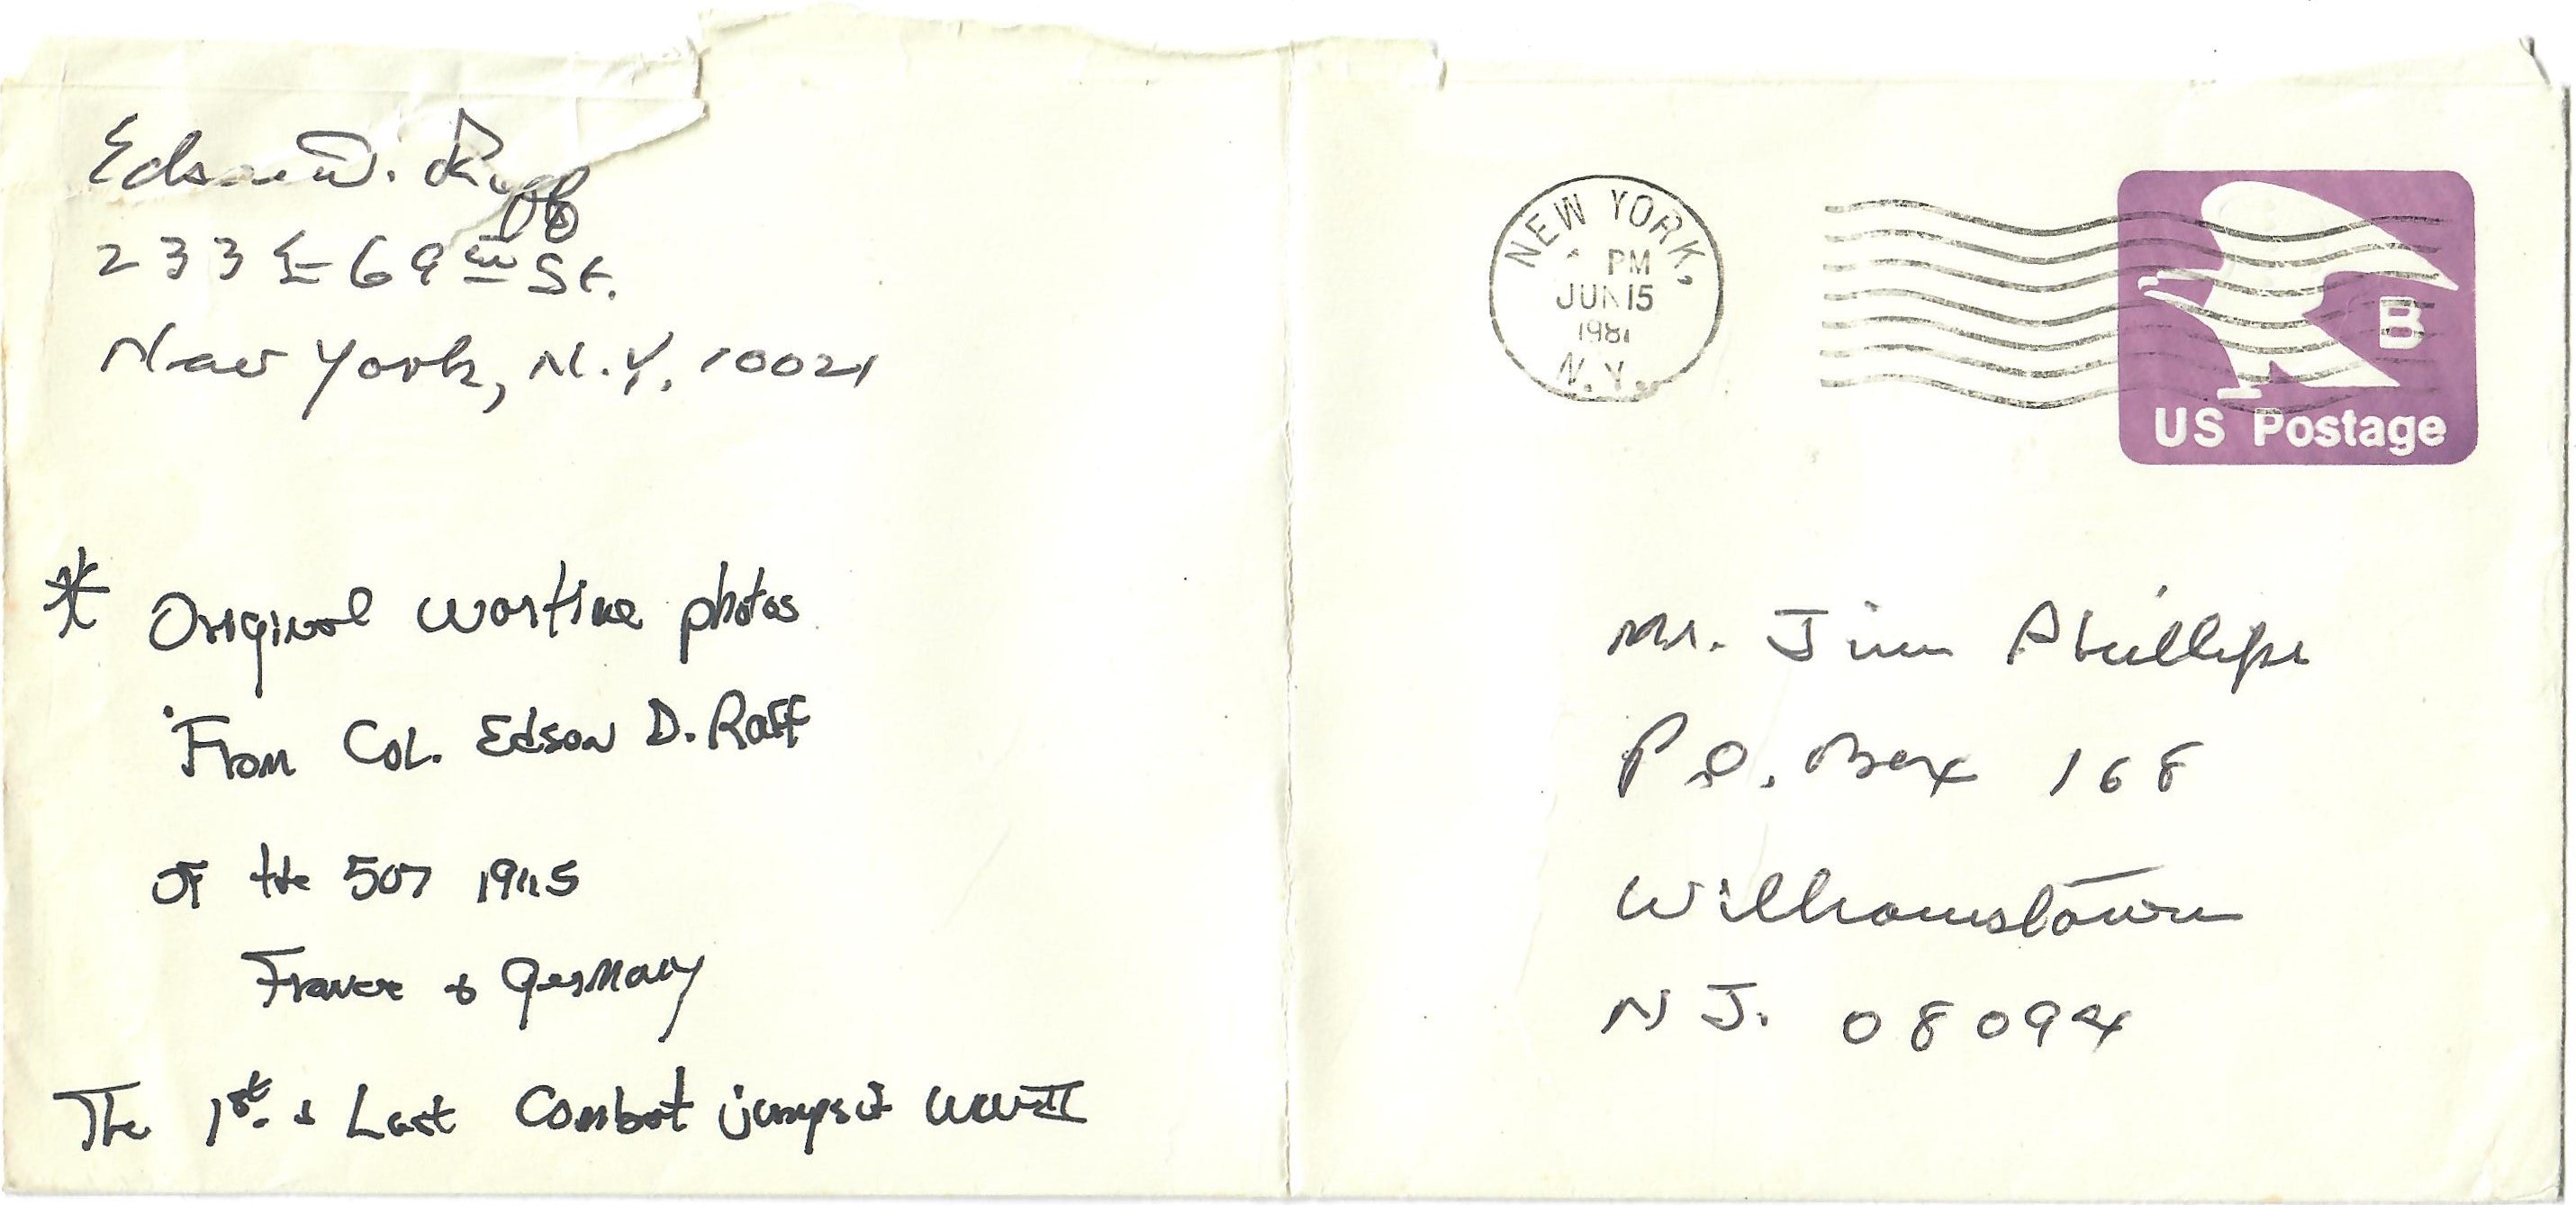 Edson D. Raff
233 E 69th St.
New York, N.Y. 10021
NEW YORK,
PM
JUN 15
1981
N.Y.
B
US Postage
* Original wartime photos
From Col. Edson D. Raff
of the 507 1945
France & Germany
The 1st. & Last Combat jumps WWII
Mr. Jim Phillips
P.O. Box 168
Williamstown
N J. 08094